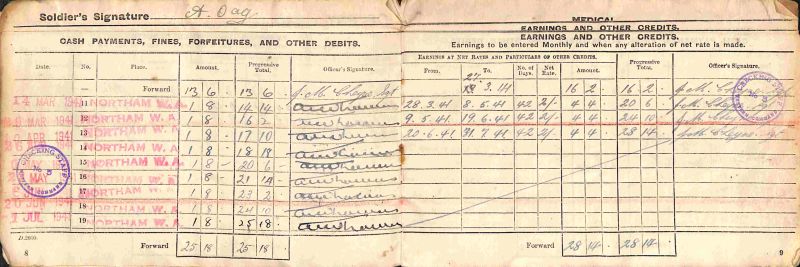 Soldier's Signature A. Dag
CASH PAYMENTS, FINES, FORFEITURES, AND OTHER DEBITS.
Date. No. Place. Amount. Progressive Total. Officer's Signature.
Forward 13 6 13 6
14 MAR 194 NORTHAM W.A. 1 8 14 14
MAR 194 12 NORTHAM W.A. 1 8 16 2
APR 194 13 NORTHAM W.A. 1 8 17 10
14 NORTHAM W.A. 1 8 18 18
MAY 15 NORTHAM W.A. 1 8 - 20 6
MAY 16 NORTHAM W.A. 1 8 21 14
17 NORTHAM W.A. 1 8 23 2
20 JUN 194 18 NORTHAM W.A. 1 8 24 10
1 JUL 194 19 NORTHAM W.A. 1 8 25 18
CHECKING STAFF
No 5
D.2600. Forward 25 18 25 18
8
MEDICAL
EARNINGS AND OTHER CREDITS.
EARNINGS AND OTHER CREDITS.
Earnings to be entered Monthly and when any alteration of net rate is made.
EARNINGS AT NET RATES AND PARTICULARS OF OTHER CREDITS.
From. To. No. of Days. Net Rate. Amount. Progressive Total. Officer's Signature.
27. 3. 41 16 2 16 2
28.3.41 8.5.41 42 2/- 4 4 20 6
9.5.41 19.6.41 42 2/- 4 4 24 10
20.6.41 31.7.41 42 2/- 4 4 28 14
CHECKING STAFF
No 5
Forward 28 14 28 14
9